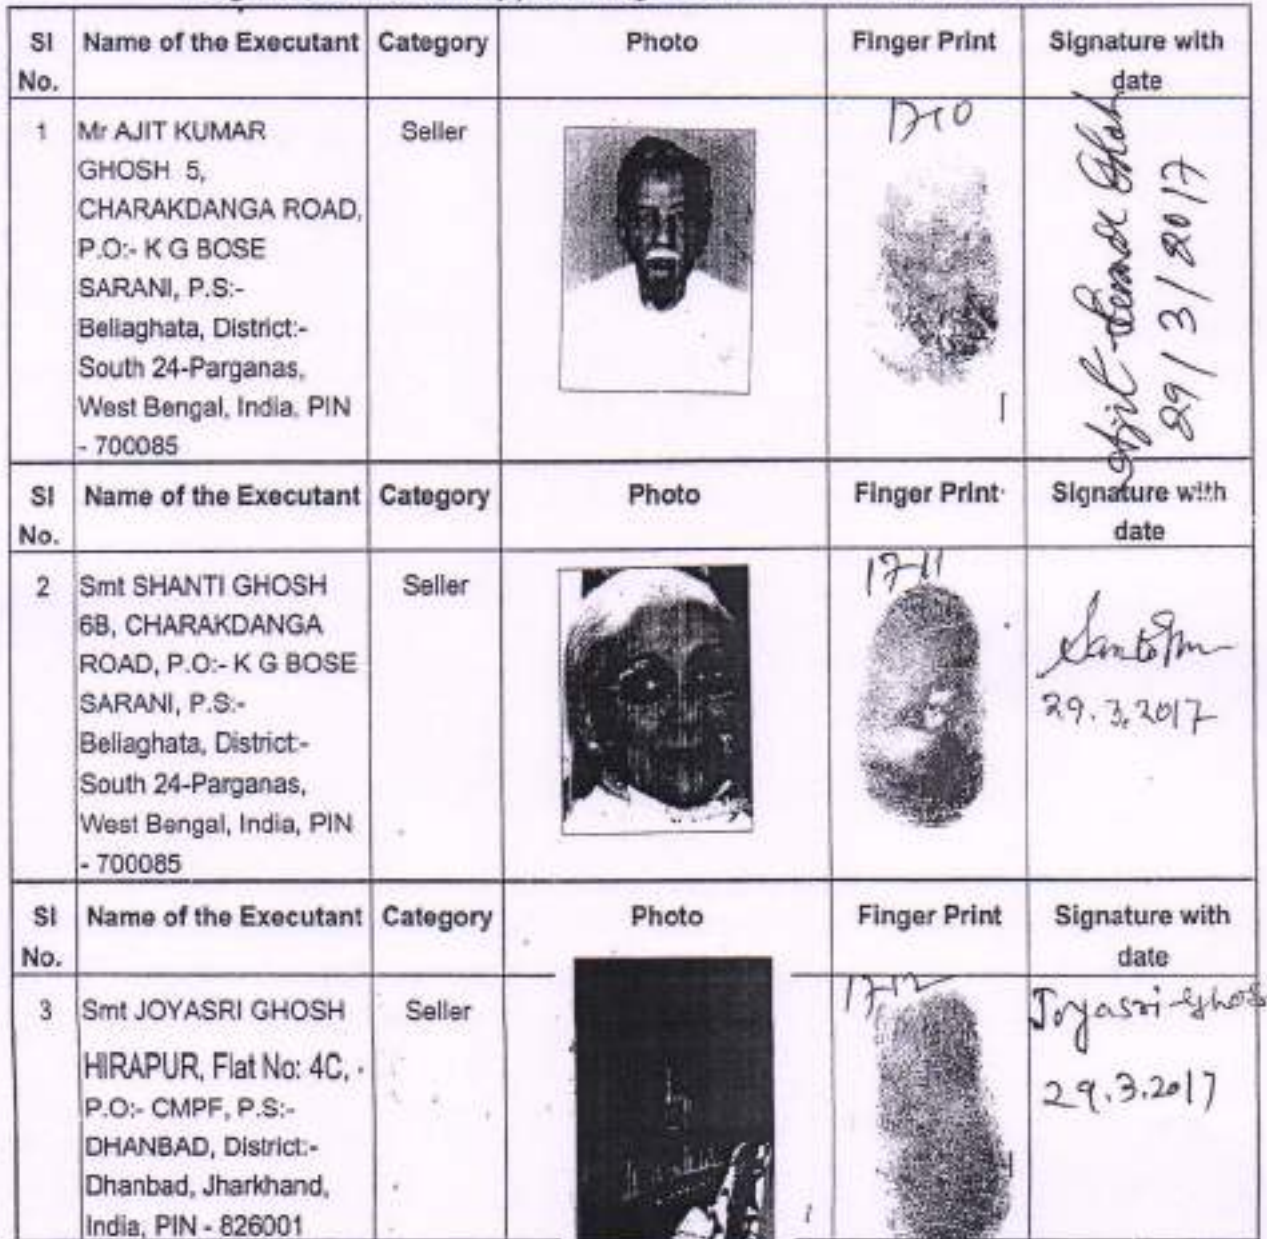 SI No. Name of the Executant Category Photo Finger Print Signature with date
1 Mr AJIT KUMAR Seller 1710
GHOSH 5,
CHARAKDANGA ROAD,
P.O:- K G BOSE
SARANI, P.S:-
Beliaghata, District:-
South 24-Parganas,
West Bengal, India, PIN
- 700085
Ajit
29/3/2017
SI No. Name of the Executant Category Photo Finger Print Signature with date
2 Smt SHANTI GHOSH Seller 1711
6B, CHARAKDANGA
ROAD, P.O:- K G BOSE
SARANI, P.S:-
Beliaghata, District:-
South 24-Parganas,
West Bengal, India, PIN
- 700085
29.3.2017
SI No. Name of the Executant Category Photo Finger Print Signature with date
3 Smt JOYASRI GHOSH Seller 1712
HIRAPUR, Flat No: 4C,
P.O:- CMPF, P.S:-
DHANBAD, District:-
Dhanbad, Jharkhand,
India, PIN - 826001
Joyasri Ghosh
29.3.2017